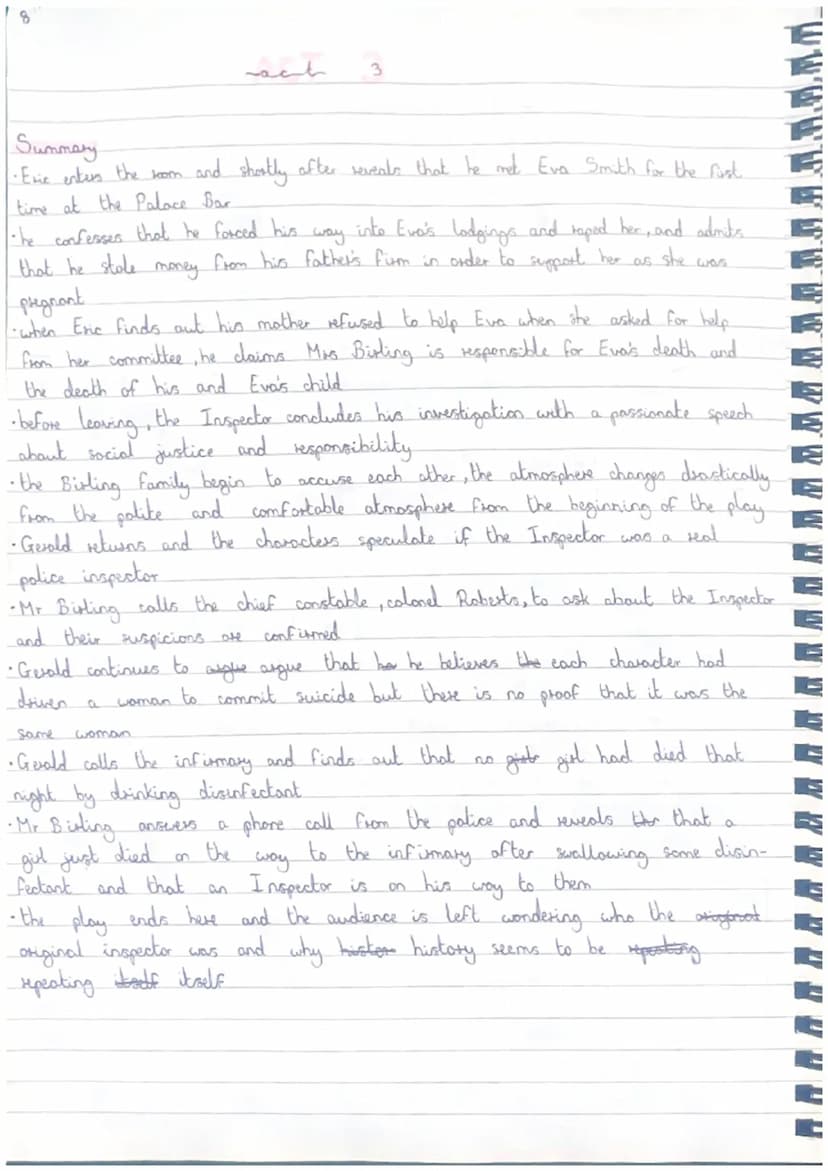 8
act 3
Summary
· Eric enters the room and shortly after reveals that he met Eva Smith for the first
time at the Palace Bar
· he confesses that he forced his way into Eva's lodgings and raped her, and admits
that he stole money from his father's firm in order to support her as she was
pregnant
· when Eric finds out his mother refused to help Eva when she asked for help
from her committee, he claims Mrs Birling is responsible for Eva's death and
the death of his and Eva's child
· before leaving, the Inspector concludes his investigation with a passionate speech
about social justice and responsibility
· the Birling family begin to accuse each other, the atmosphere changes drastically
from the polite and comfortable atmosphere from the beginning of the play
· Gerald returns and the characters speculate if the Inspector was a real
police inspector
· Mr Birling calls the chief constable, colonel Roberts, to ask about the Inspector
and their suspicions are confirmed
· Gerald continues to argue that he believes each character had
driven a woman to commit suicide but there is no proof that it was the
same woman
· Gerald calls the infirmary and finds out that no girl had died that
night by drinking disinfectant
· Mr Birling answers a phone call from the police and reveals that a
girl just died on the way to the infirmary after swallowing some disin-
fectant and that an Inspector is on his way to them
· the play ends here and the audience is left wondering who the
original inspector was and why history seems to be
repeating itself